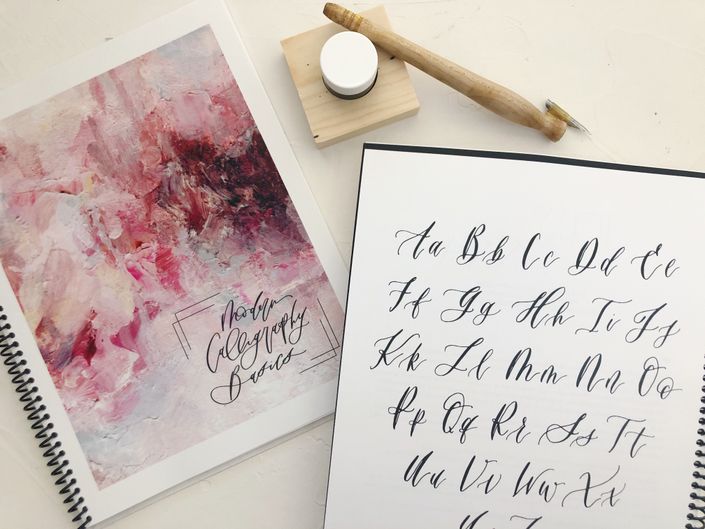 Modern
Calligraphy
Basics
Aa Bb Cc Dd Ee
Ff Gg Hh Ii Jj
Kk Ll Mm Nn Oo
Pp Qq Rr Ss Tt
Uu Vv Ww Xx